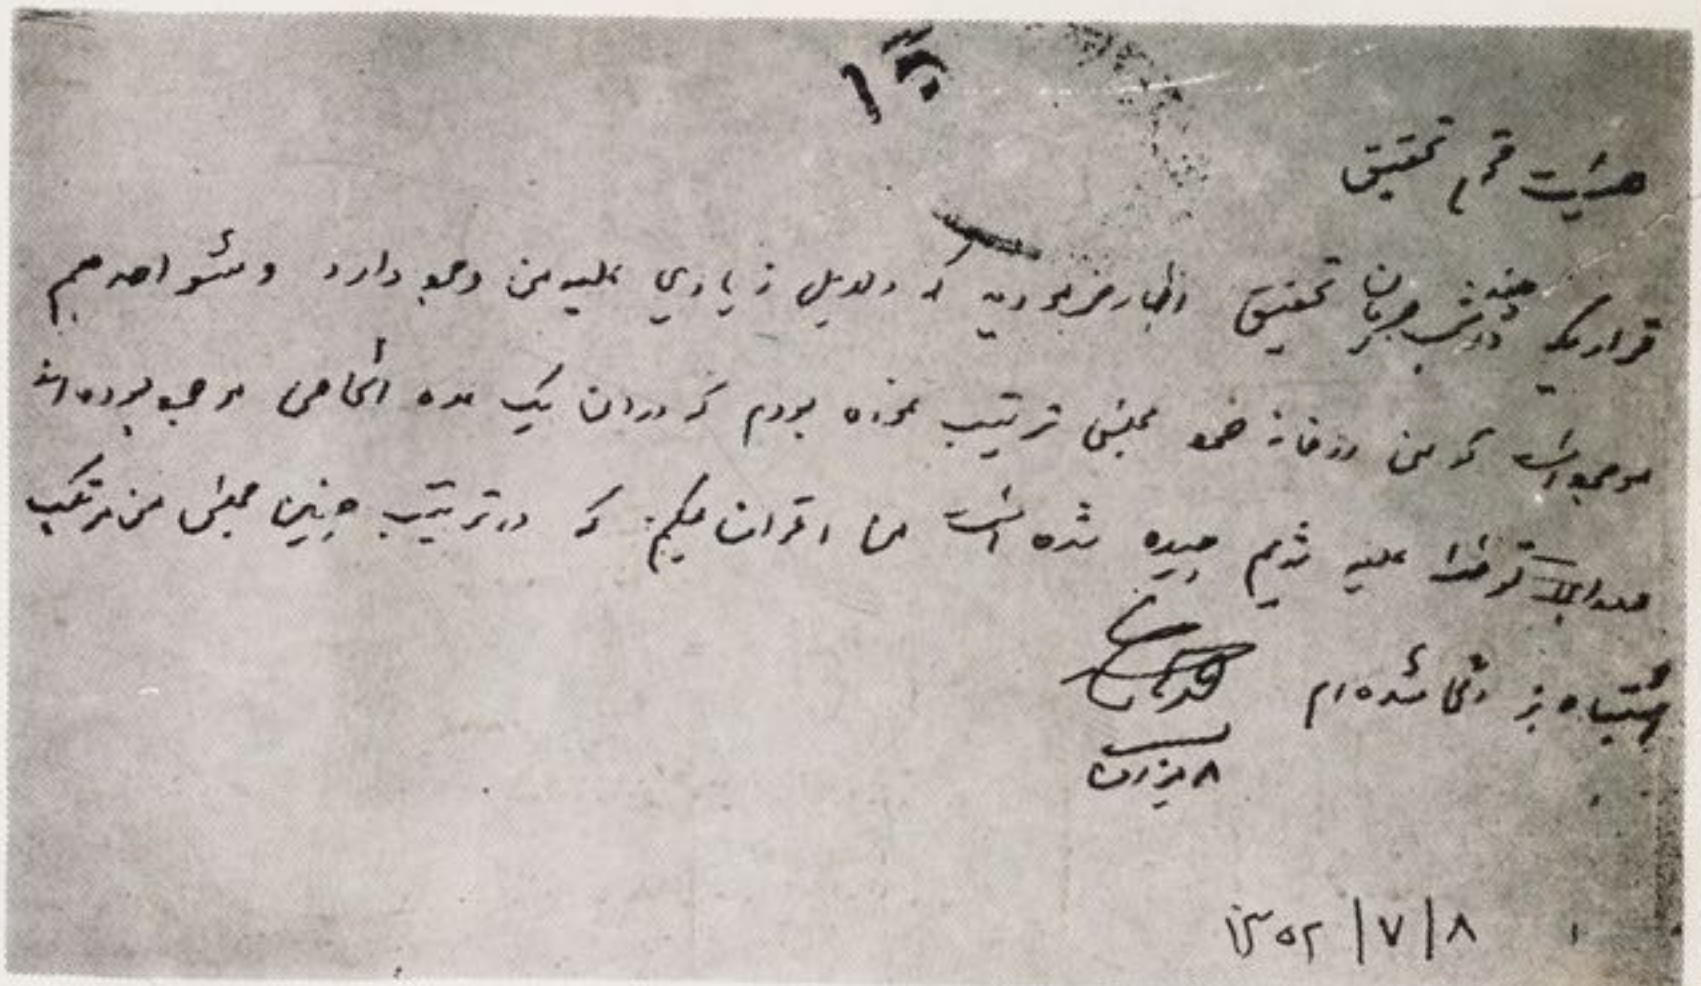 هیئت محترم تحقیق
قراریکه در چند شب جریان تحقیق اظهار فرمودید که دلایل زیادی علیه من وجود دارد و شواهد هم
موجود است که من در خانه خود مجلسی ترتیب نموده بودم که در آن یک عده اشخاص موجود بوده اند
علیه شده است من اقرار میکنم که در ترتیب چنین مجلس من مرتکب
اشتباه شده ام
۸ میزان
۱۳۵۲ / ۷ / ۸